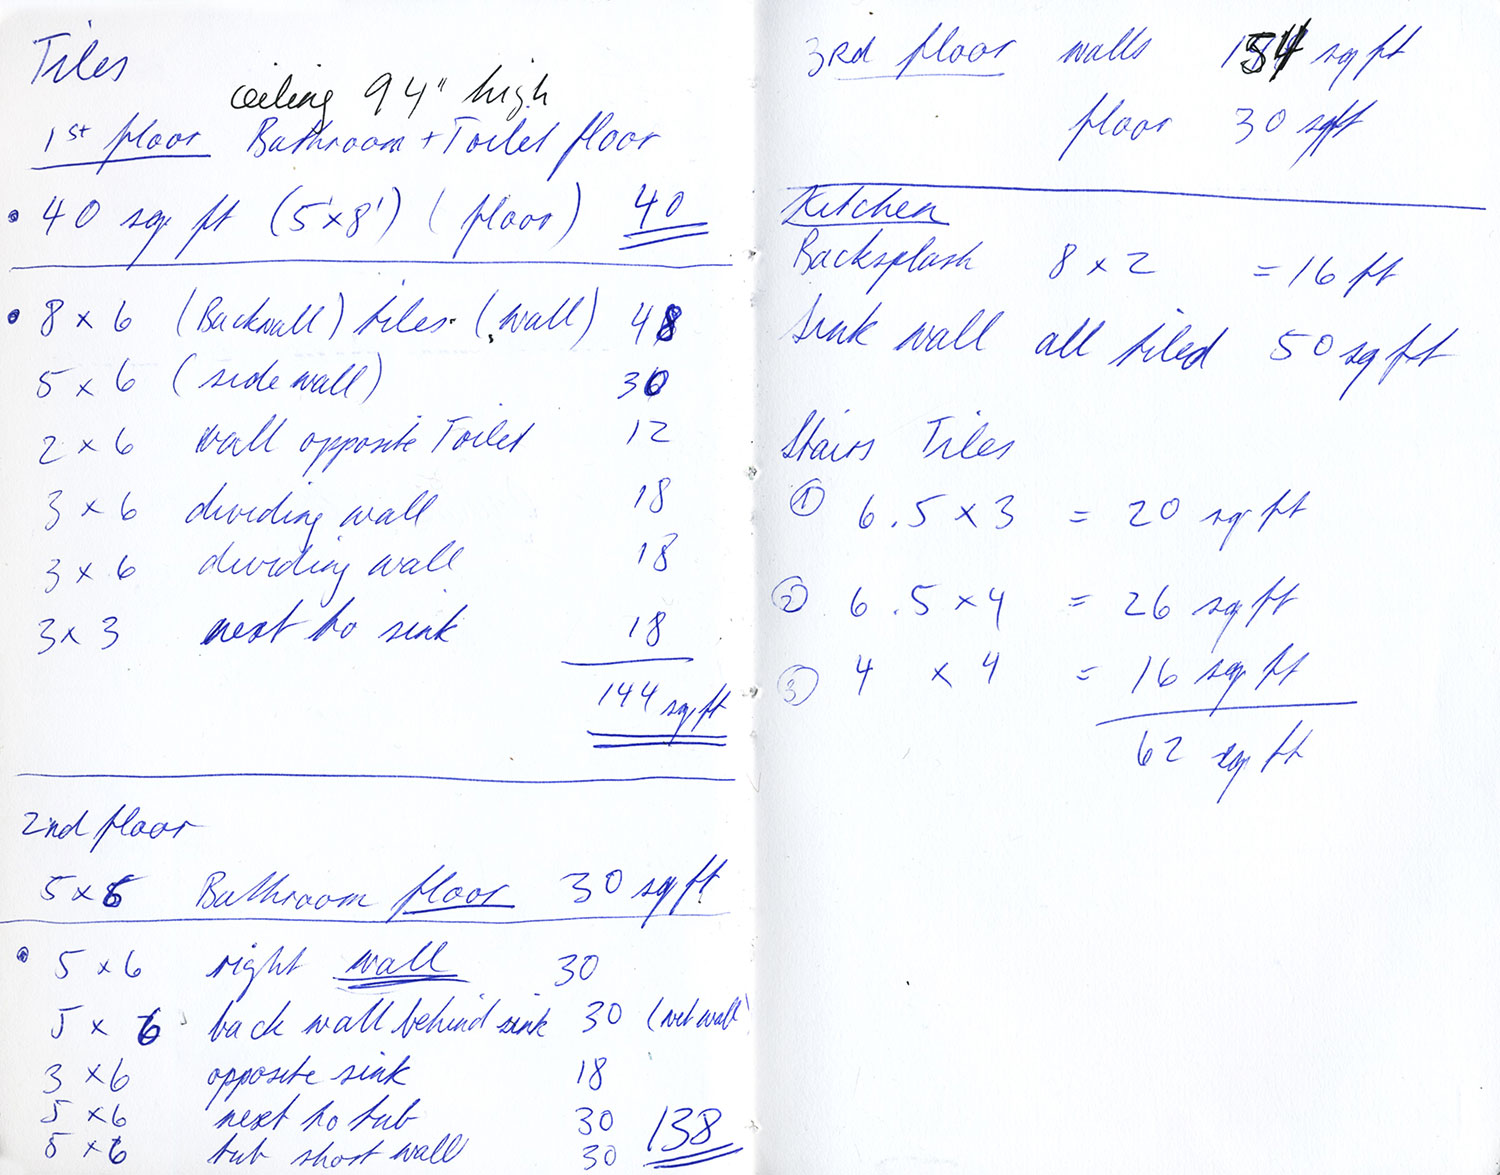 Tiles
ceiling 94" high
1st floor Bathroom + Toilet floor
• 40 sq ft (5'x8') (floor) 40
• 8 x 6 (Backwall) tiles (wall) 48
5 x 6 (side wall) 30
2 x 6 wall opposite Toilet 12
3 x 6 dividing wall 18
3 x 6 dividing wall 18
3 x 3 next to sink 18
144 sq ft
2nd floor
5 x 6 Bathroom floor 30 sq ft
• 5 x 6 right wall 30
5 x 6 back wall behind sink 30 (wet wall
3 x 6 opposite sink 18
5 x 6 next to tub 30
5 x 6 tub short wall 30 138
3rd floor walls 154 sq ft
floor 30 sqft
Kitchen
Backsplash 8 x 2 = 16 ft
Sink wall all tiled 50 sq ft
Stairs Tiles
① 6.5 x 3 = 20 sq ft
② 6.5 x 4 = 26 sq ft
③ 4 x 4 = 16 sq ft
62 sq ft